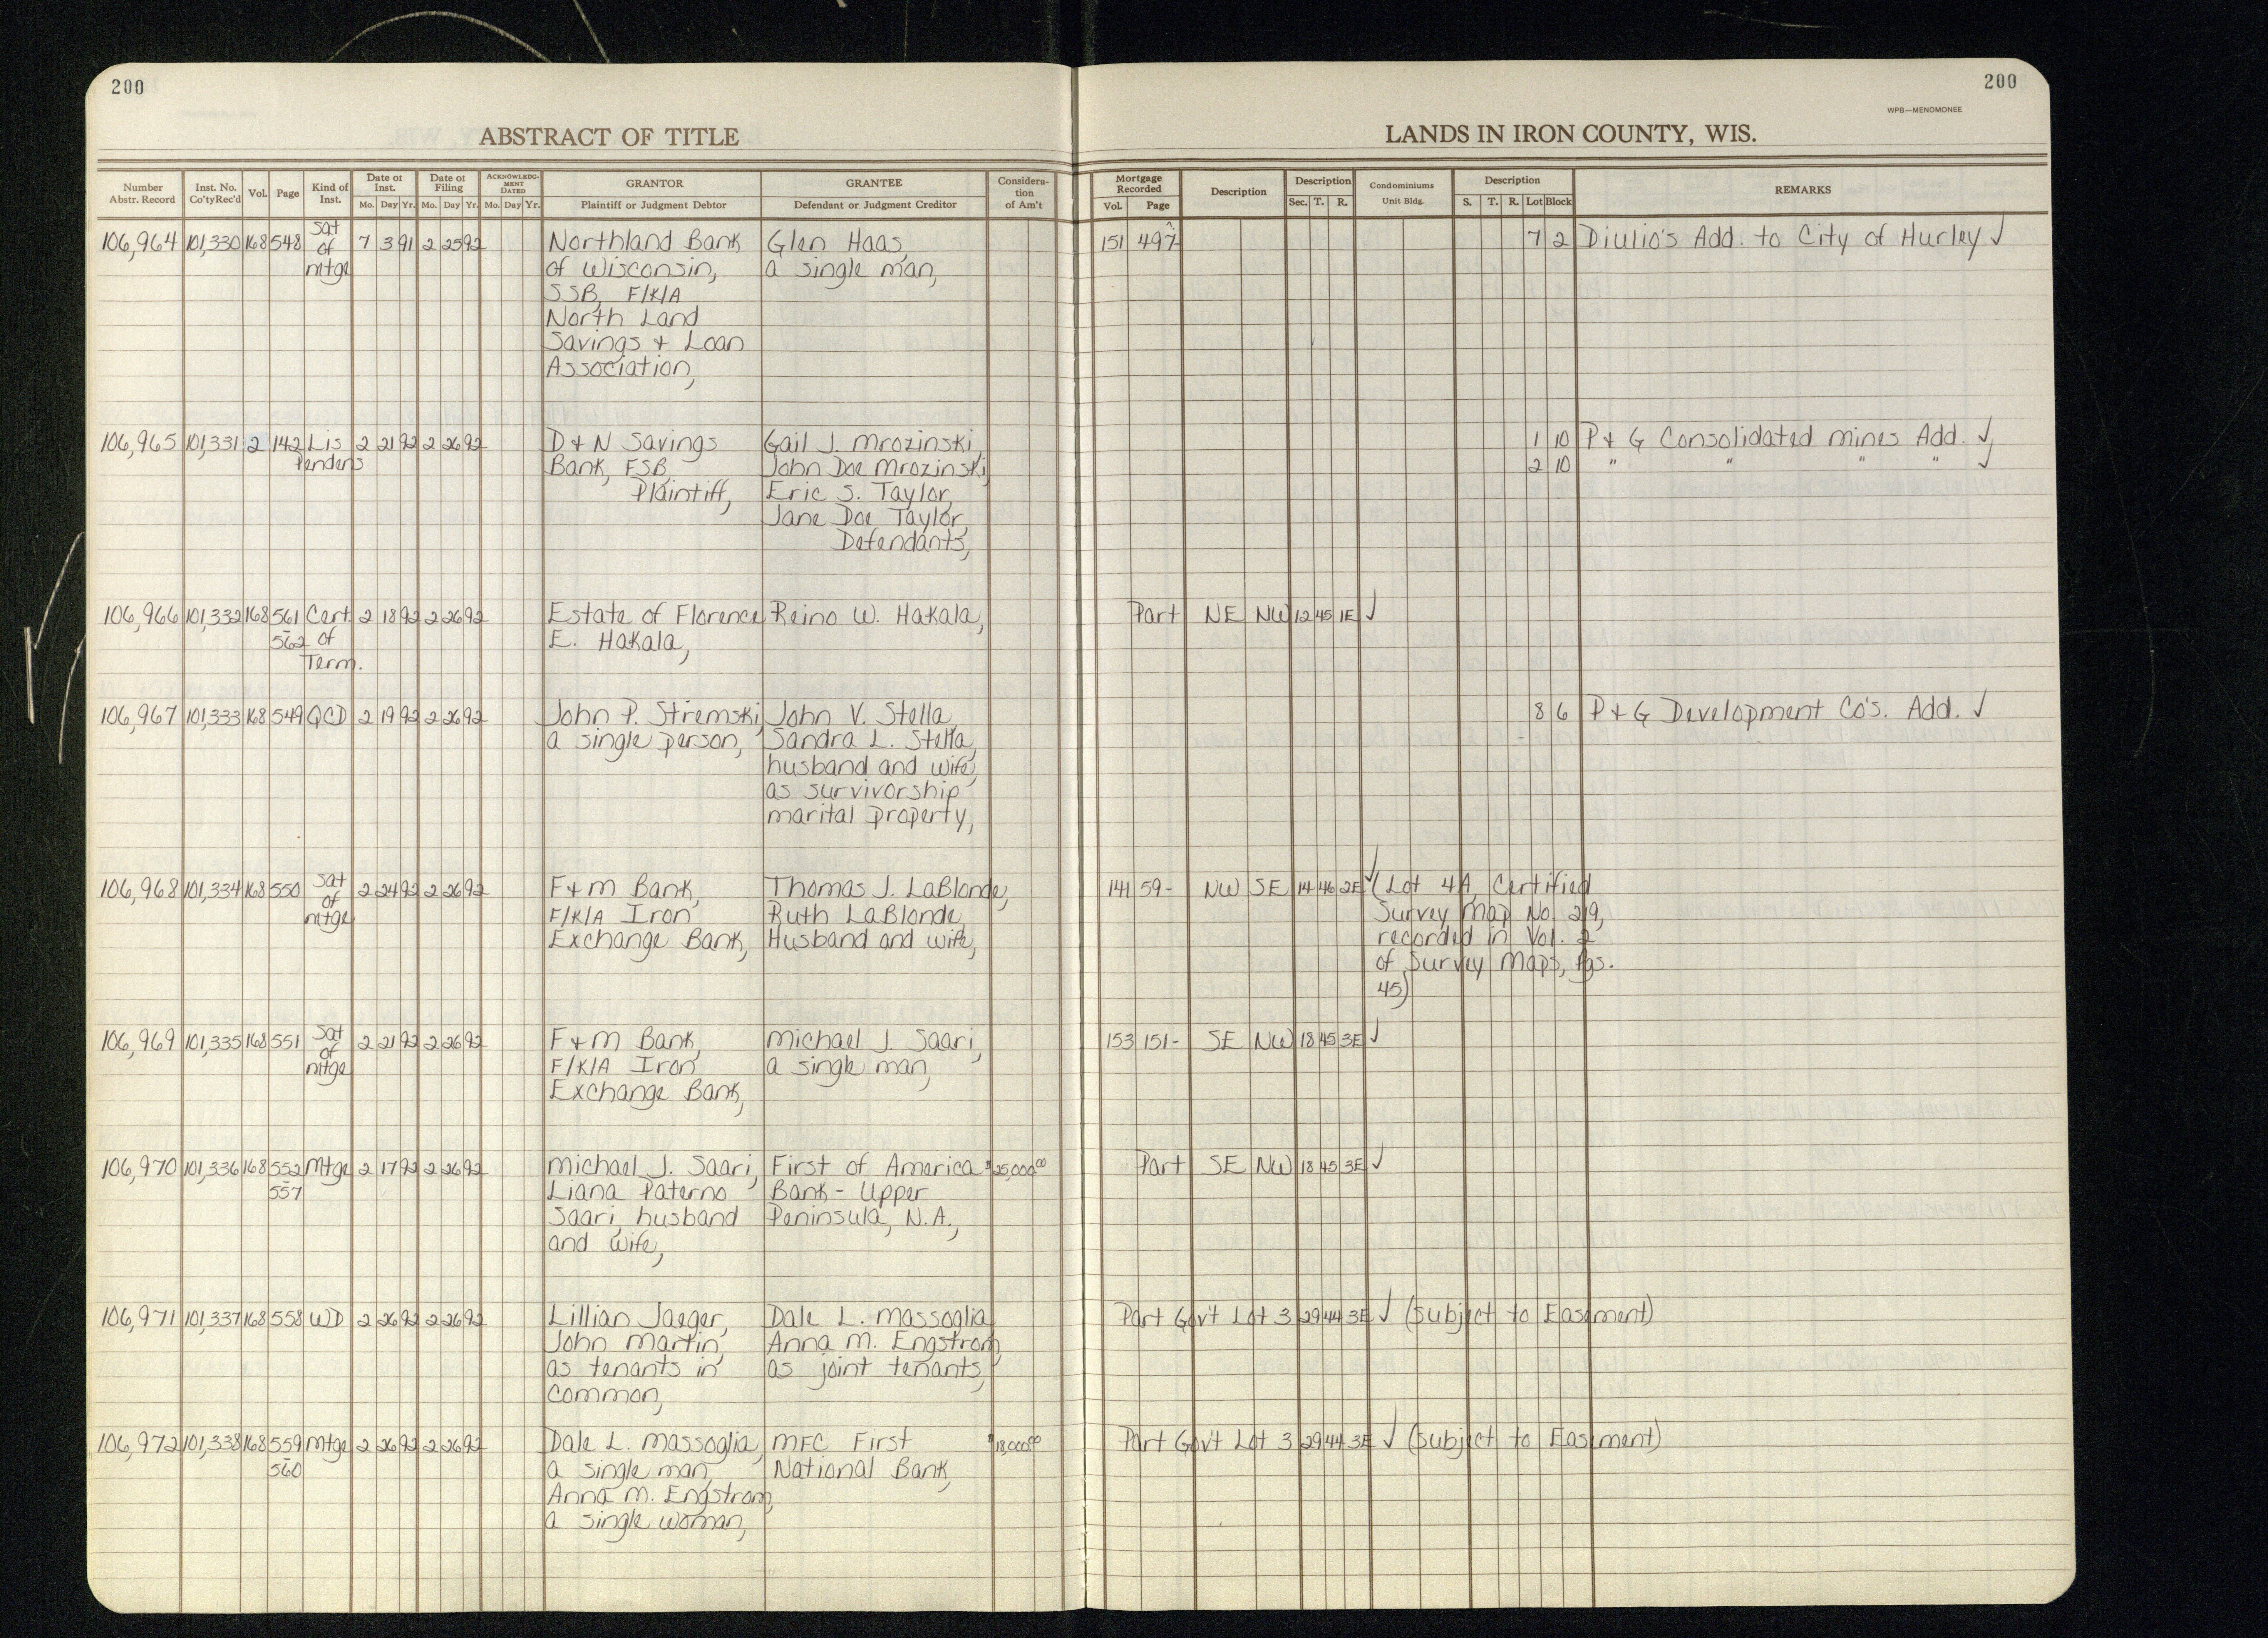 200
200
WPB—MENOMONEE
ABSTRACT OF TITLE
LANDS IN IRON COUNTY, WIS.
Number Abstr. Record | Inst. No. Co'ty Rec'd | Vol. | Page | Kind of Inst. | Date of Inst. Mo. Day Yr. | Date of Filing Mo. Day Yr. | ACKNOWLEDGMENT DATED Mo. Day Yr. | GRANTOR Plaintiff or Judgment Debtor | GRANTEE Defendant or Judgment Creditor | Consideration of Am't | Mortgage Recorded Vol. Page | Description | Description Sec. T. R. | Condominiums Unit Bldg. | Description S. T. R. Lot Block | REMARKS
106,964 101,330 168 548 Sat 7 3 91 2 25 92 Northland Bank Glen Haas, 151 497 7 2 Diulio's Add. to City of Hurley ✓
of of Wisconsin, a single man,
mtge SSB, F/K/A
North Land
Savings + Loan
Association,
106,965 101,331 2 142 Lis 2 21 92 2 26 92 D + N Savings Gail J. Mrozinski, 1 10 P + G Consolidated Mines Add. ✓
Pendens Bank, FSB, John Doe Mrozinski, 2 10 " " " " ✓
Plaintiff, Eric S. Taylor,
Jane Doe Taylor,
Defendants,
106,966 101,332 168 561 Cert. 2 18 92 2 26 92 Estate of Florence Reino W. Hakala, Part NE NW 12 45 1E ✓
562 of E. Hakala,
Term.
106,967 101,333 168 549 QCD 2 19 92 2 26 92 John P. Stremski, John V. Stella, 8 6 P + G Development Co's. Add. ✓
a single person, Sandra L. Stella,
husband and wife,
as survivorship
marital property,
106,968 101,334 168 550 Sat 2 24 92 2 26 92 F + M Bank, Thomas J. LaBlonde, 141 59- NW SE 14 46 2E ✓ (Lot 4A, Certified
of F/K/A Iron Ruth LaBlonde, Survey Map No. 219,
mtge Exchange Bank, Husband and wife, recorded in Vol. 2
of Survey Maps, Pgs.
45)
106,969 101,335 168 551 Sat 2 21 92 2 26 92 F + M Bank, Michael J. Saari, 153 151- SE NW 18 45 3E ✓
of F/K/A Iron a single man,
mtge Exchange Bank,
106,970 101,336 168 552 Mtge 2 17 92 2 26 92 Michael J. Saari, First of America $25,000.00 Part SE NW 18 45 3E ✓
557 Liana Paterno Bank - Upper
Saari, husband Peninsula, N.A.,
and wife,
106,971 101,337 168 558 WD 2 26 92 2 26 92 Lillian Jaeger, Dale L. Massoglia, Part Gov't Lot 3 29 44 3E ✓ (Subject to Easement)
John Martin, Anna M. Engstrom,
as tenants in as joint tenants,
common,
106,972 101,338 168 559 Mtge 2 26 92 2 26 92 Dale L. Massoglia, MFC First $18,000.00 Part Gov't Lot 3 29 44 3E ✓ (Subject to Easement)
560 a single man, National Bank,
Anna M. Engstrom,
a single woman,